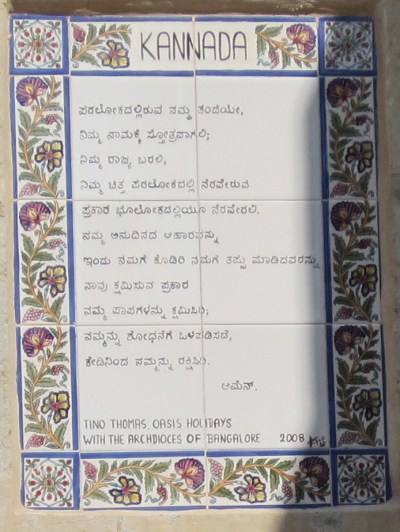 KANNADA
ಪರಲೋಕದಲ್ಲಿರುವ ನಮ್ಮ ತಂದೆಯೇ,
ನಿಮ್ಮ ನಾಮಕ್ಕೆ ಸ್ತೋತ್ರವಾಗಲಿ;
ನಿಮ್ಮ ರಾಜ್ಯ ಬರಲಿ,
ನಿಮ್ಮ ಚಿತ್ತ ಪರಲೋಕದಲ್ಲಿ ನೆರವೇರುವ
ಪ್ರಕಾರ ಭೂಲೋಕದಲ್ಲಿಯೂ ನೆರವೇರಲಿ,
ನಮ್ಮ ಅನುದಿನದ ಆಹಾರವನ್ನು
ಇಂದು ನಮಗೆ ಕೊಡಿರಿ ನಮಗೆ ತಪ್ಪು ಮಾಡಿದವರನ್ನು
ನಾವು ಕ್ಷಮಿಸುವ ಪ್ರಕಾರ
ನಮ್ಮ ಪಾಪಗಳನ್ನು ಕ್ಷಮಿಸಿರಿ;
ನಮ್ಮನ್ನು ಶೋಧನೆಗೆ ಒಳಪಡಿಸದೆ,
ಕೇಡಿನಿಂದ ನಮ್ಮನ್ನು ರಕ್ಷಿಸಿರಿ.
ಆಮೆನ್.
TINO THOMAS, OASIS HOLIDAYS
WITH THE ARCHDIOCES OF BANGALORE 2008